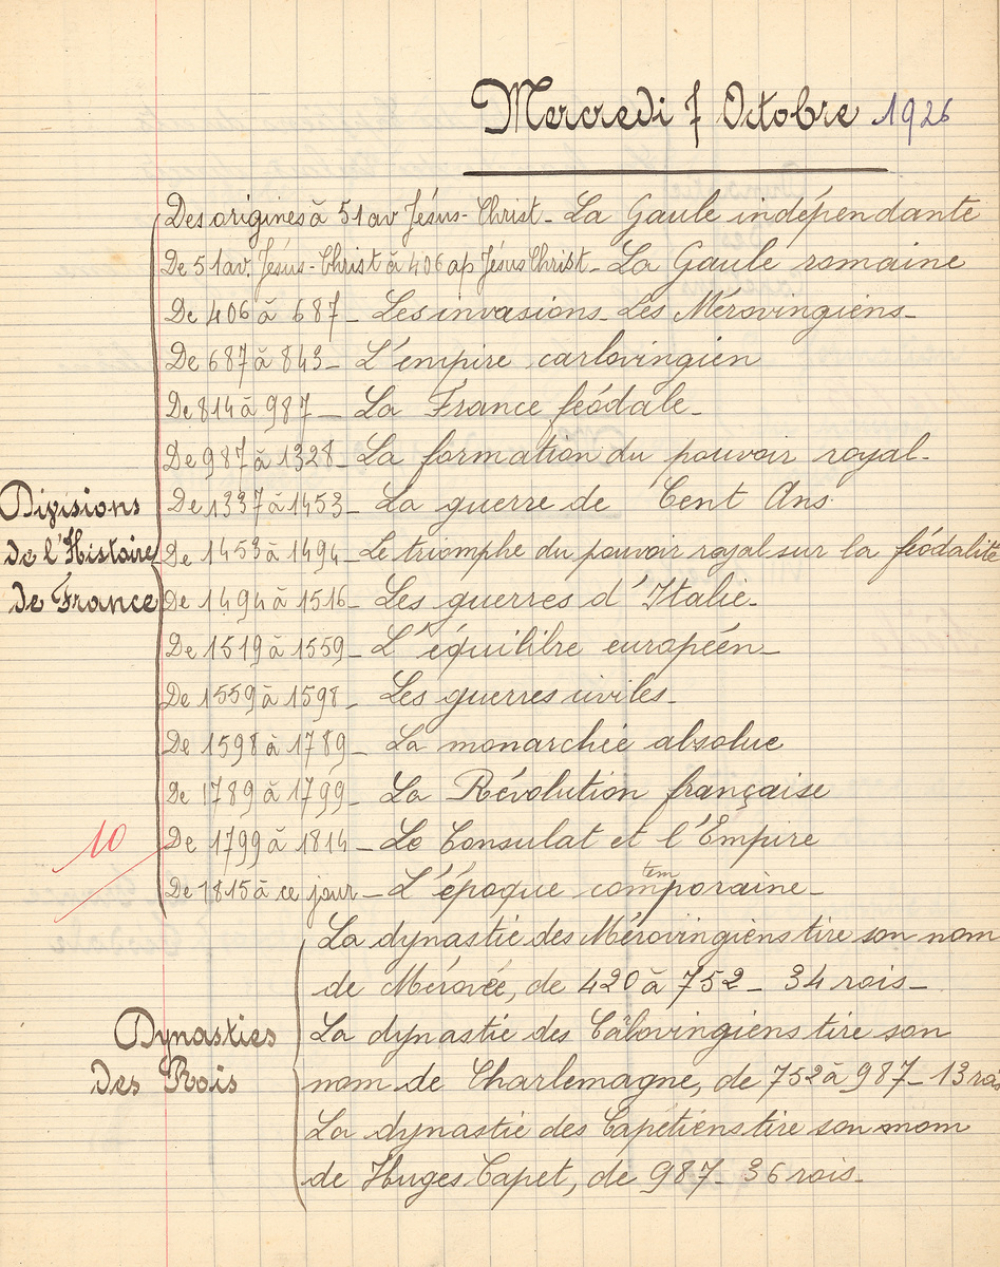 Mercredi 7 Octobre 1926
Des origines à 51 av Jésus-Christ - La Gaule indépendante
De 51 av. Jésus-Christ à 406 ap Jésus Christ - La Gaule romaine
De 406 à 687 - Les invasions - Les Mérovingiens -
De 687 à 843 - L'empire carlovingien
De 814 à 987 - La France féodale -
De 987 à 1328 - La formation du pouvoir royal -
De 1337 à 1453 - La guerre de Cent Ans
De 1453 à 1494 - Le triomphe du pouvoir royal sur la féodalité
De 1494 à 1516 - Les guerres d'Italie -
De 1519 à 1559 - L'équilibre européen -
De 1559 à 1598 - Les guerres civiles -
De 1598 à 1789 - La monarchie absolue
De 1789 à 1799 - La Révolution française
De 1799 à 1814 - Le Consulat et l'Empire
De 1815 à ce jour - L'époque comtemporaine -
Divisions
de l'Histoire
de France
10
La dynastie des Mérovingiens tire son nom
de Mérovée, de 420 à 752 - 34 rois -
La dynastie des Calovingiens tire son
nom de Charlemagne, de 752 à 987 - 13 rois
La dynastie des Capétiens tire son nom
de Huges Capet, de 987 - 36 rois -
Dynasties
des Rois